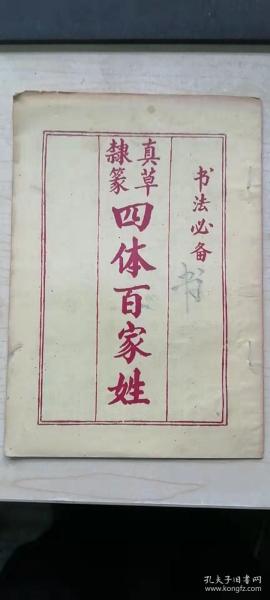 书法必备
书
真草
隸篆
四体百家姓
孔夫子旧书网
www.kongfz.com